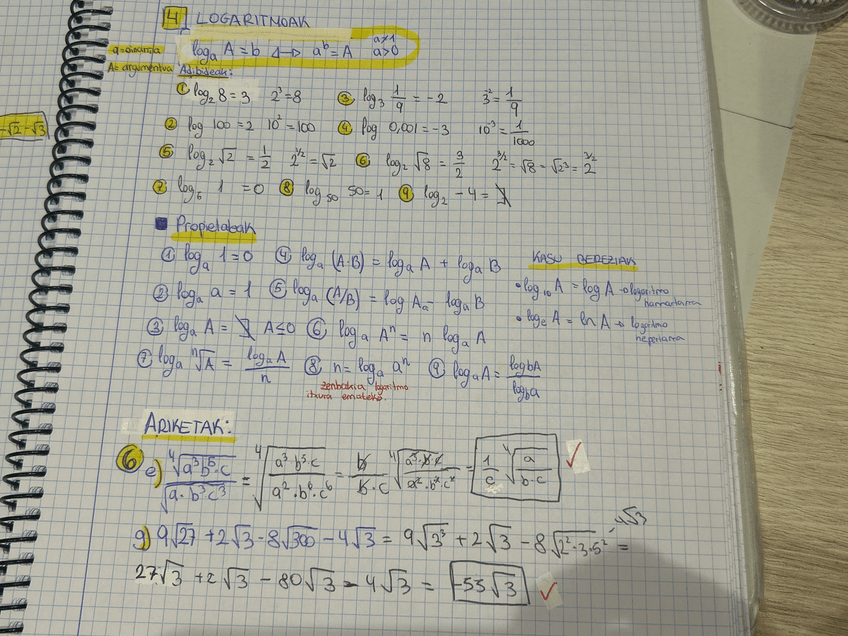 4 LOGARITMOAK
a≠1
a=oinarria logₐ A = b ◁—▷ aᵇ = A a>0
A = argumentua Adibideak:
① log₂ 8 = 3 2³ = 8 ③ log₃ 1/9 = -2 3⁻² = 1/9
② log 100 = 2 10² = 100 ④ log 0,001 = -3 10⁻³ = 1/1000
⑤ log₂ √2 = 1/2 2^(1/2) = √2 ⑥ log₂ √8 = 3/2 2^(3/2) = √8 = √2³ = 2^(3/2)
⑦ log₅ 1 = 0 ⑧ log₅₀ 50 = 1 ⑨ log₂ -4 = ∄
-√2-√3
Propietateak
① logₐ 1 = 0 ④ logₐ (A·B) = logₐ A + logₐ B
② logₐ a = 1 ⑤ logₐ (A/B) = log Aₐ - logₐ B
③ logₐ A = ∄ A≤0 ⑥ logₐ Aⁿ = n logₐ A
⑦ logₐ ⁿ√A = logₐ A / n ⑧ n = logₐ aⁿ ⑨ logₐ A = log_b A / log_b a
zenbakia logaritmo
itxura emateko.
KASU BEREZIAK
• log₁₀ A = log A → logaritmo
hamartarra
• logₑ A = ln A → logaritmo
nepertarra
ARIKETAK:
6 e) ⁴√(a³b⁵·c) / √(a·b³c³) = ⁴√(a³·b⁵·c / a²·b⁶·c⁶) = b/(b·c) ⁴√(a³·b·c / a²·b²·c²) = 1/c ⁴√(a/(b·c))
g) 9√27 + 2√3 - 8√300 - 4√3 = 9√3³ + 2√3 - 8√(2²·3·5²) - 4√3 =
27√3 + 2√3 - 80√3 - 4√3 = -55√3